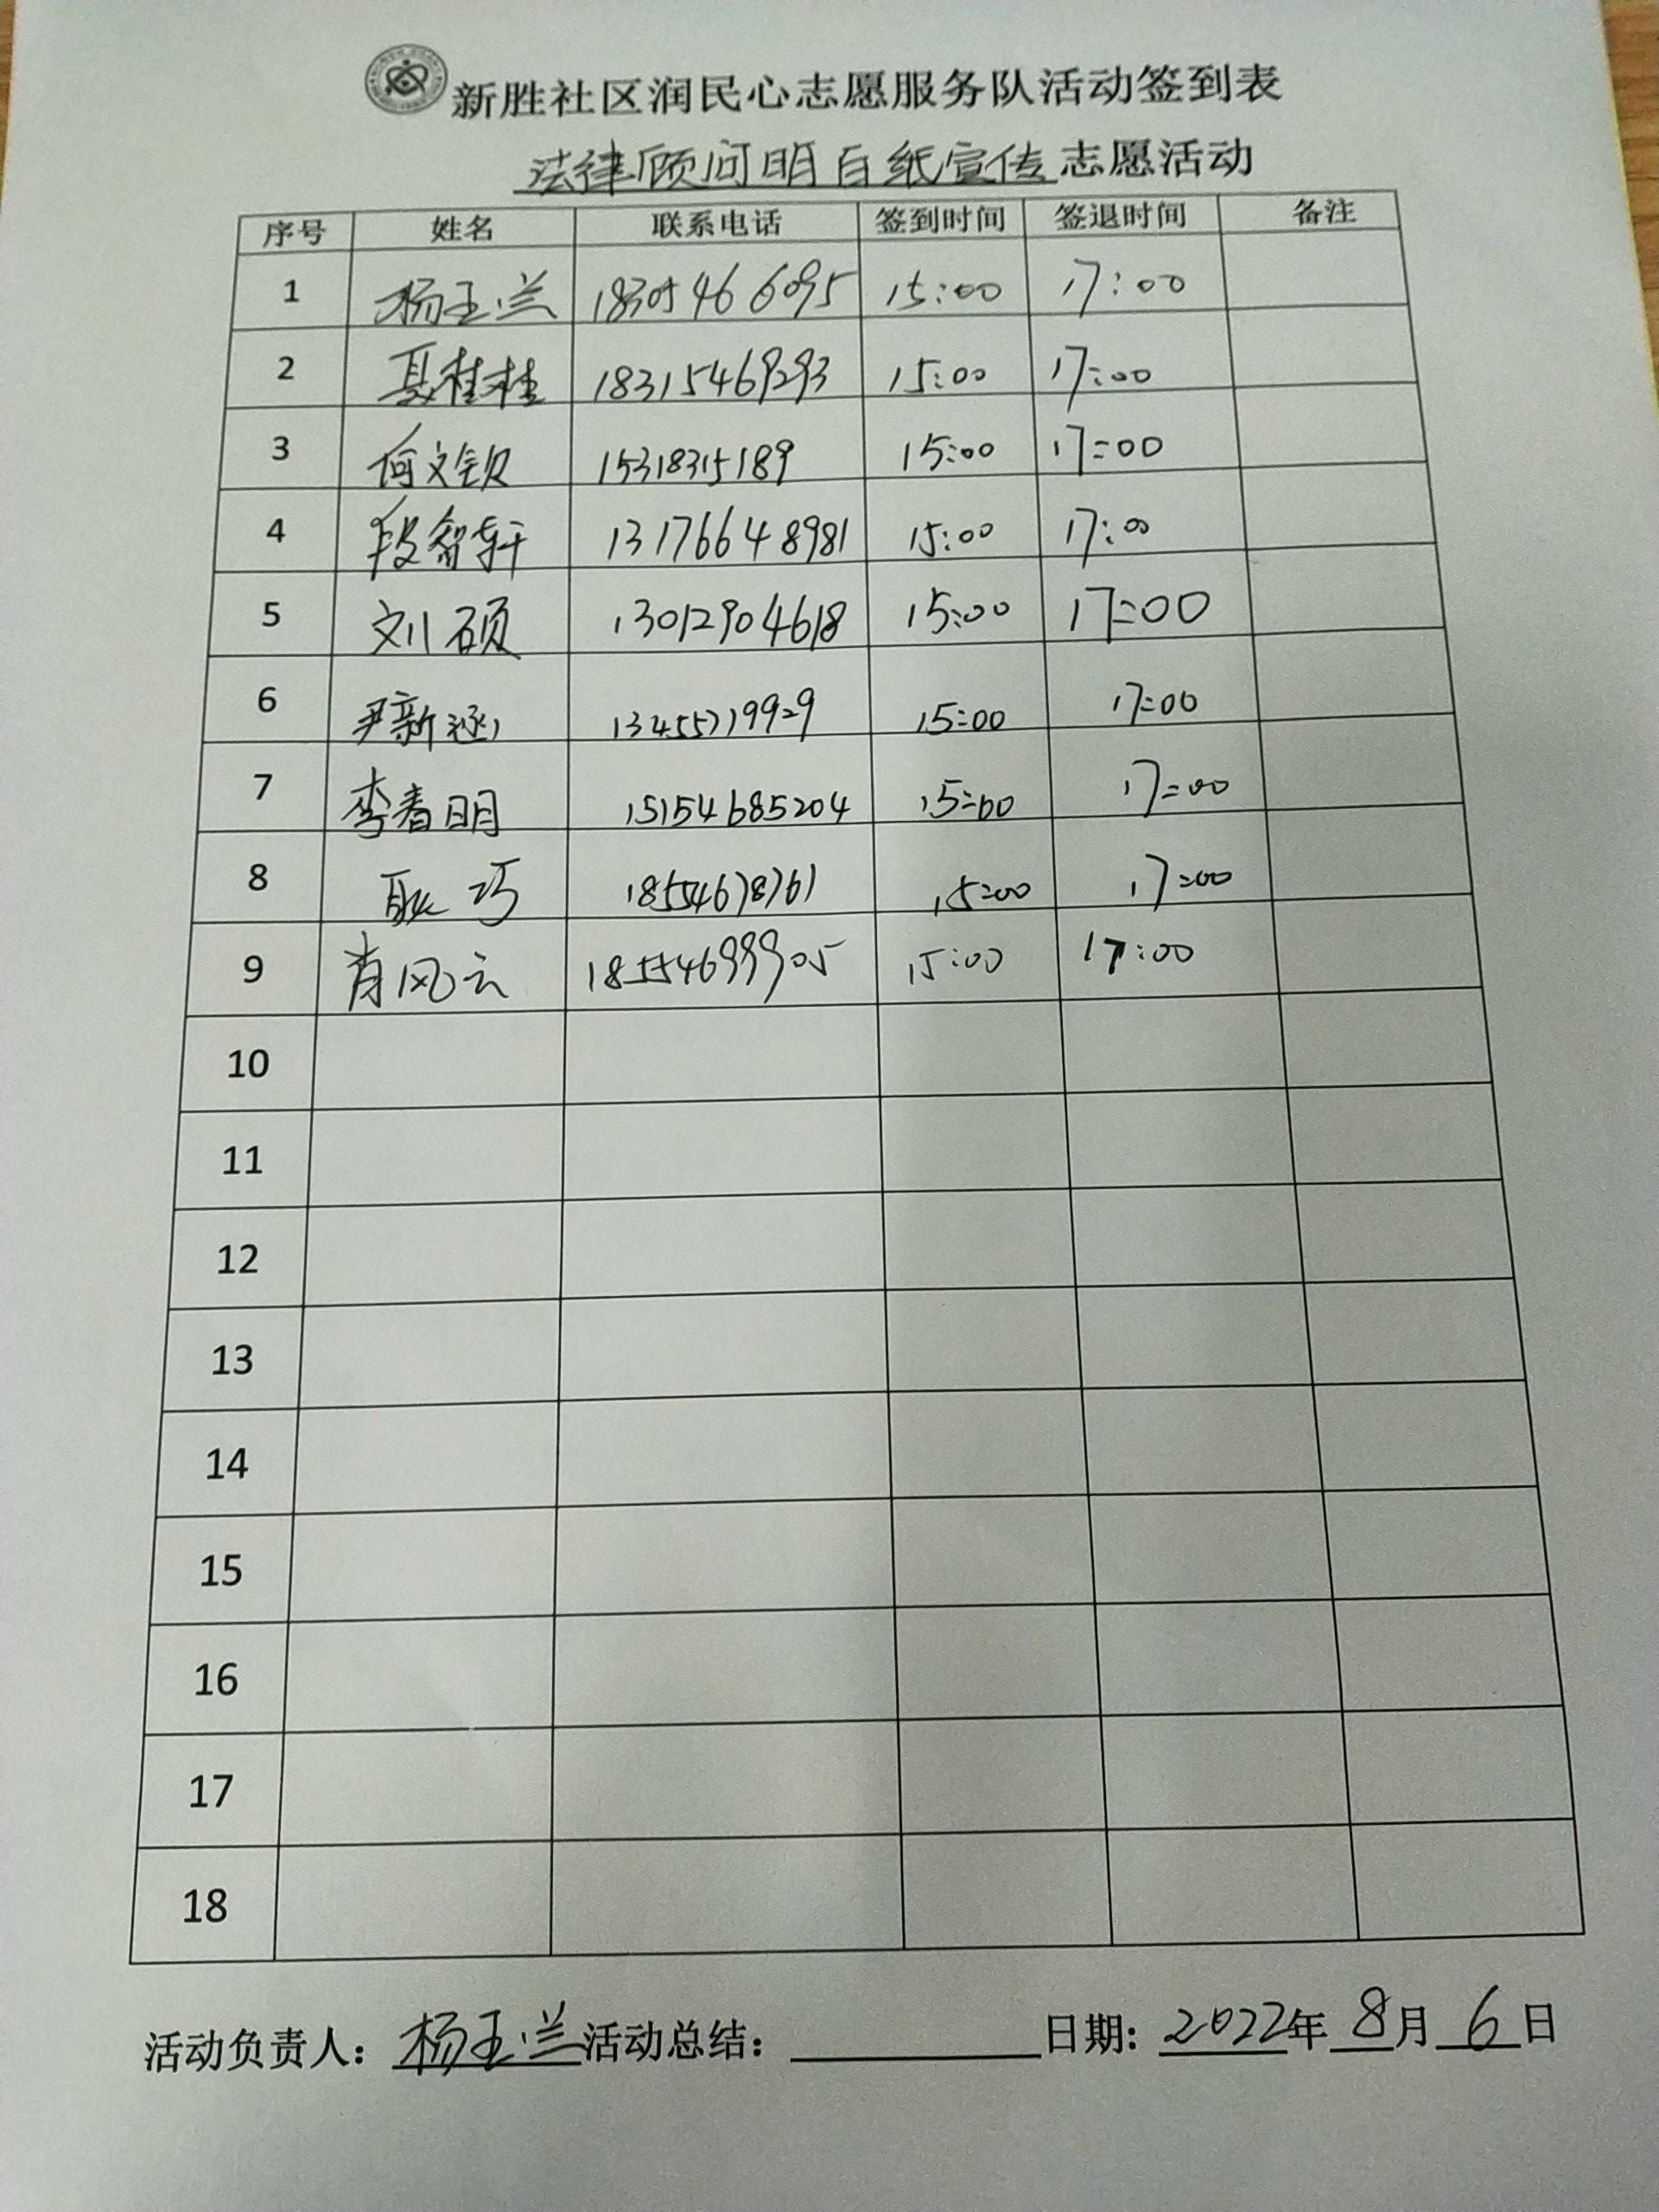 新胜社区润民心志愿服务队活动签到表
法律顾问明白纸宣传志愿活动
序号 姓名 联系电话 签到时间 签退时间 备注
1 杨玉兰 18305466095 15:00 17:00
2 聂桂桂 18315469293 15:00 17:00
3 何文钦 15318315189 15:00 17:00
4 段智轩 13176648981 15:00 17:00
5 刘硕 13012904618 15:00 17:00
6 尹新 13455719929 15:00 17:00
7 李春明 15154685204 15:00 17:00
8 耿巧 18554678761 15:00 17:00
9 肖风云 18554699905 15:00 17:00
10
11
12
13
14
15
16
17
18
活动负责人：杨玉兰 活动总结： 日期：2022年8月6日